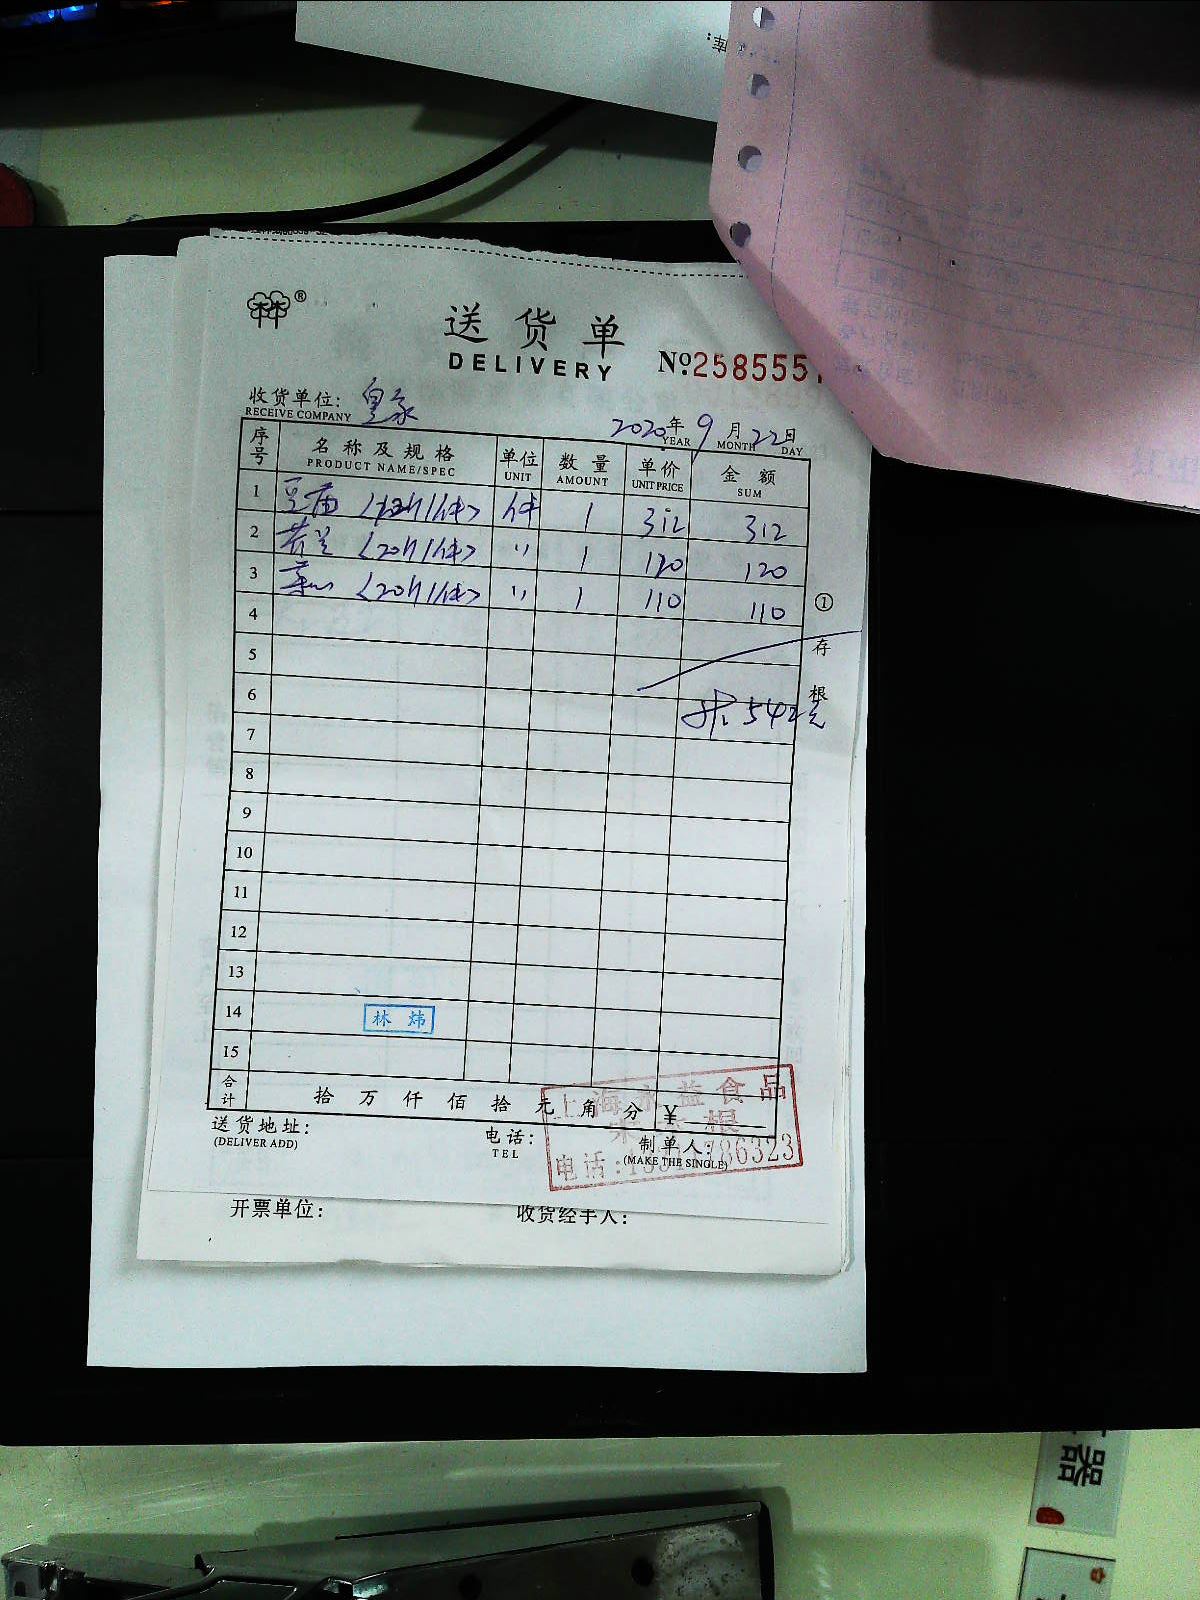 库:
®
送货单
DELIVERY
№:2585551
收货单位: 皇家
RECEIVE COMPANY
2020年 9月 22日
YEAR MONTH DAY
序号 名称及规格 单位 数量 单价 金额
PRODUCT NAME/SPEC UNIT AMOUNT UNIT PRICE SUM
1 豆苗 件 1 312 312
2 芥兰 〈20斤/件〉 〃 1 120 120
3 菜心 〈20斤/件〉 〃 1 110 110
4
5
6 共: 542元
7
8
9
10
11
12
13
14 林炜
15
①存根
合计 拾 万 仟 佰 拾 元 角 分 ¥
上海永益食品
根
送货地址: 电话: 制单人:
(DELIVER ADD) TEL (MAKE THE SINGLE)
电话: 786323
开票单位: 收货经手人:
器